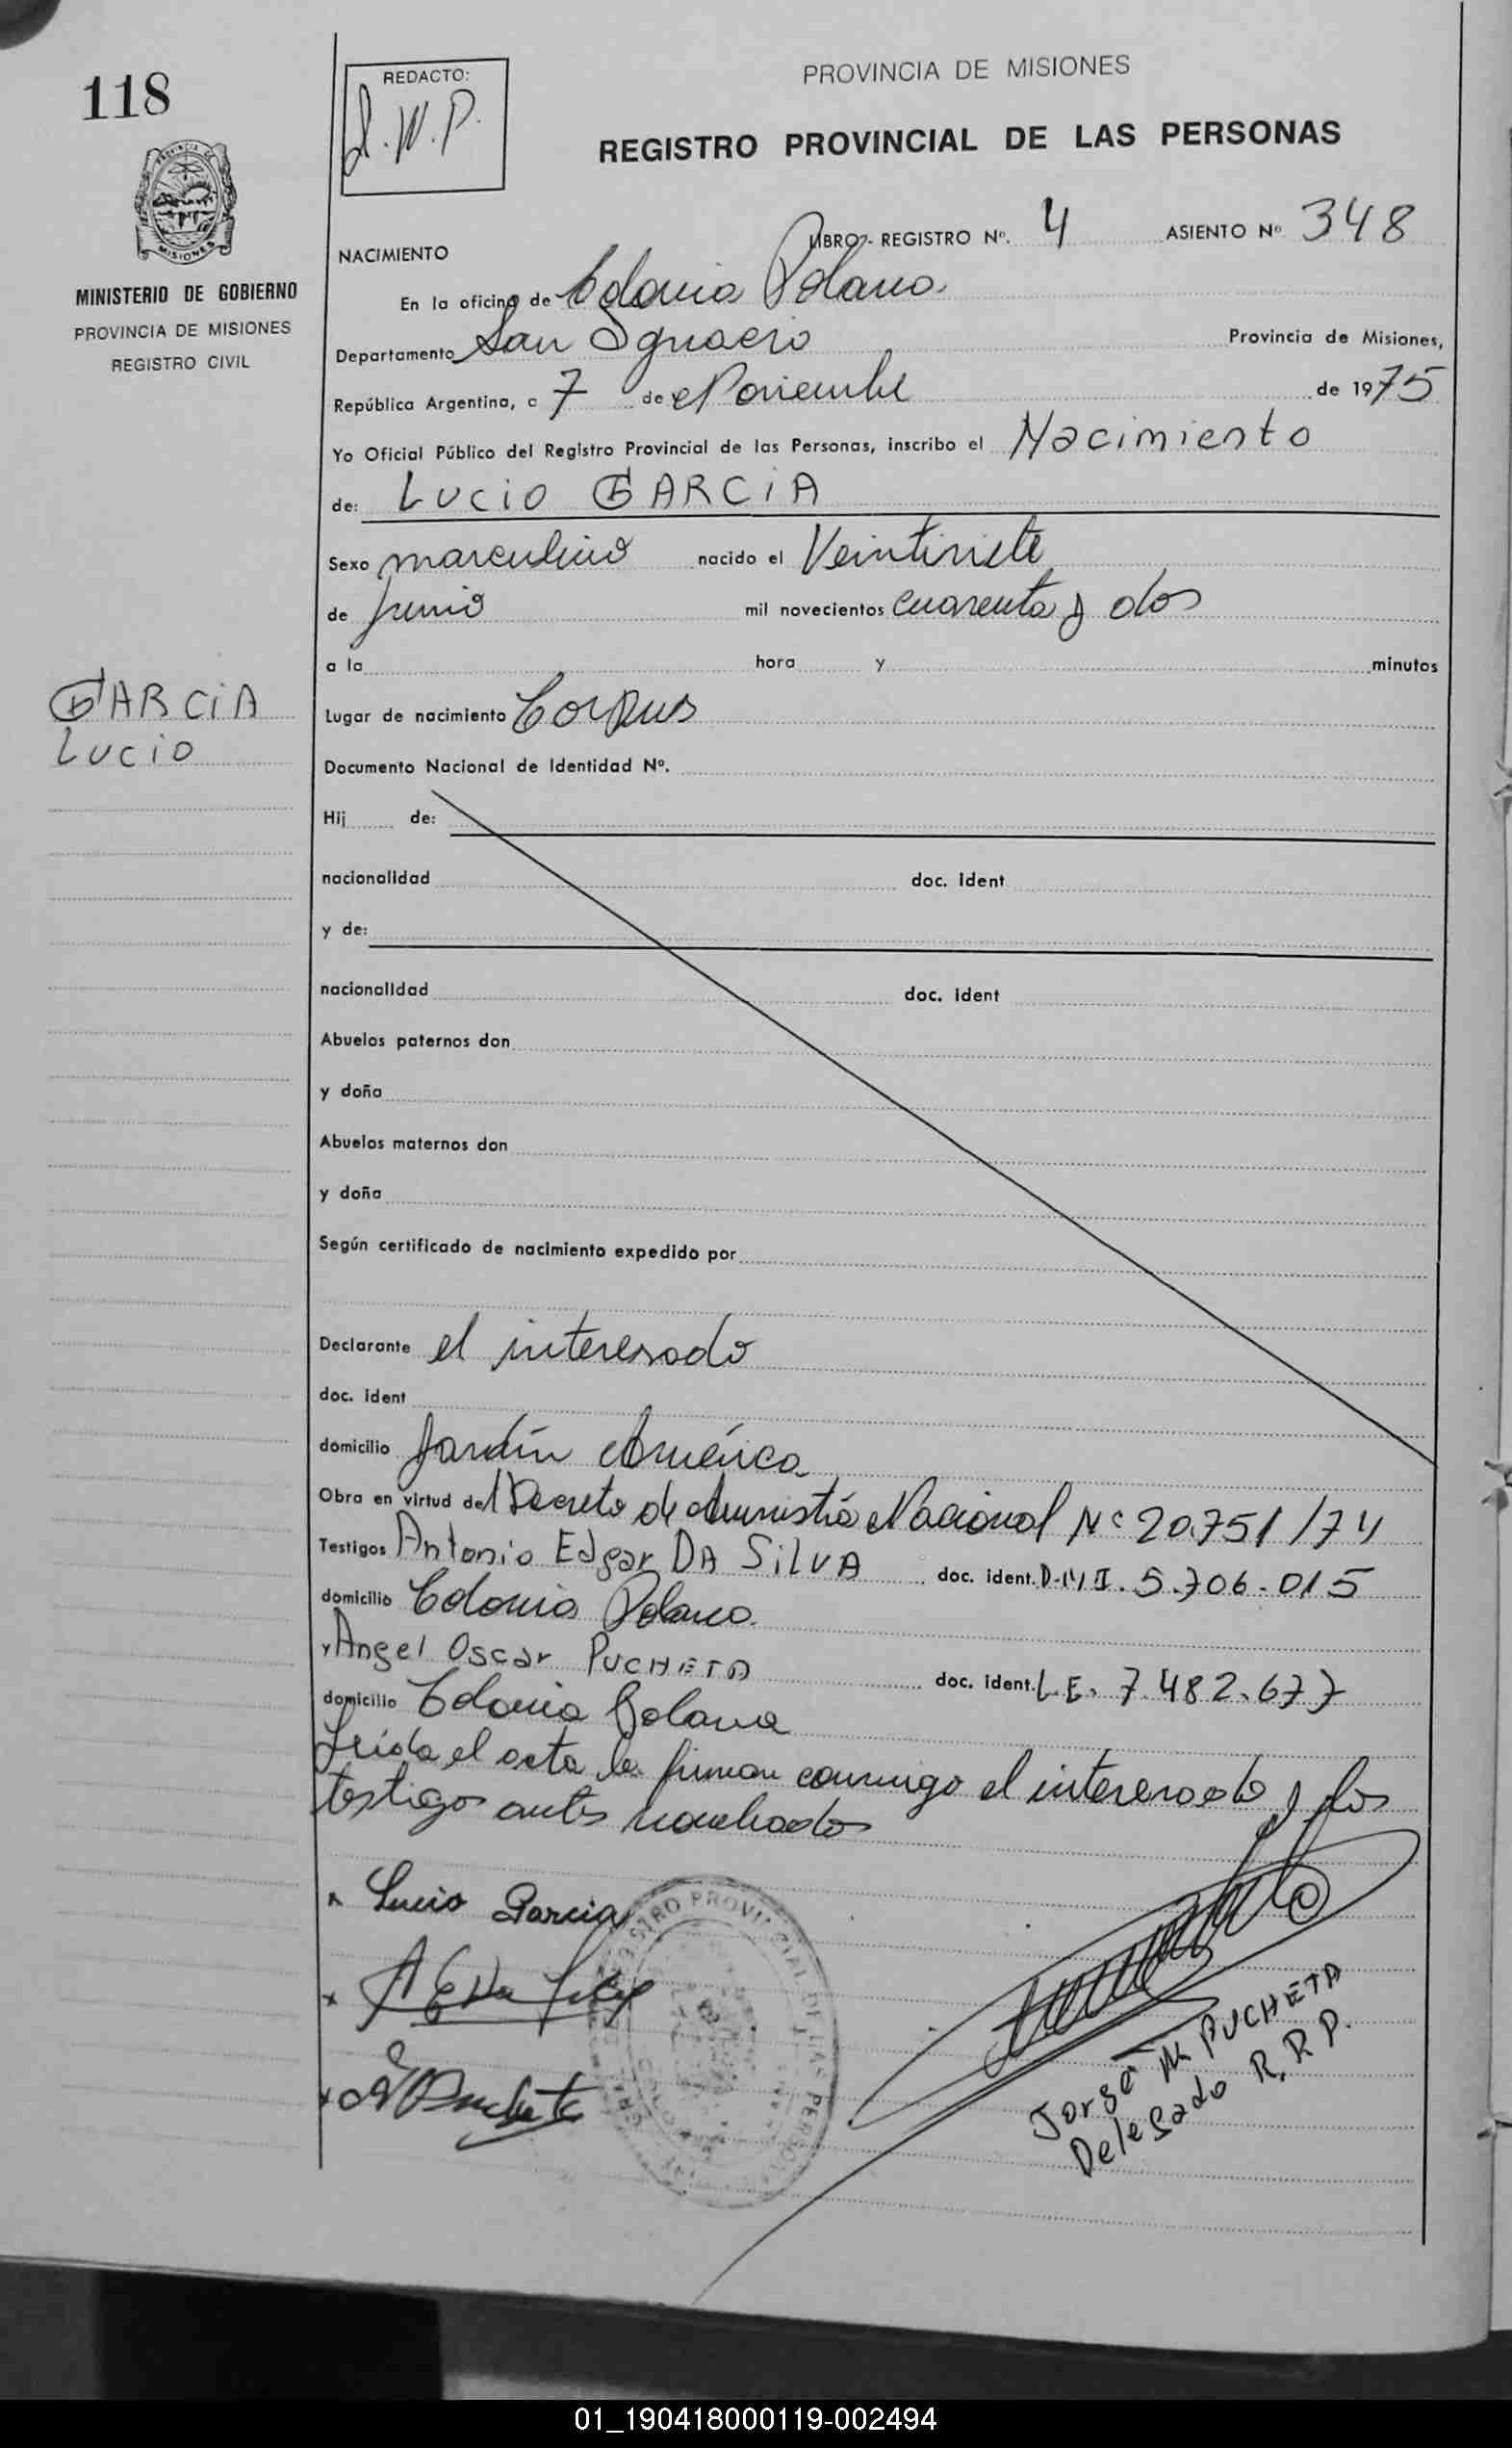 118
REDACTO:
PROVINCIA DE MISIONES
REGISTRO PROVINCIAL DE LAS PERSONAS
MISIONES
MINISTERIO DE GOBIERNO
PROVINCIA DE MISIONES
REGISTRO CIVIL
NACIMIENTO LIBRO - REGISTRO Nº. 4 ASIENTO Nº 348
En la oficina de Colonia Polana
Departamento San Ignacio Provincia de Misiones,
República Argentina, a 7 de Noviembre de 1975
Yo Oficial Público del Registro Provincial de las Personas, inscribo el Nacimiento
de: LUCIO GARCIA
Sexo masculino nacido el Veintisiete
de junio mil novecientos cuarenta y dos
a la hora y minutos
GARCIA
Lucio
Lugar de nacimiento Corpus
Documento Nacional de Identidad Nº.
Hij de:
nacionalidad doc. ident
y de:
nacionalidad doc. ident
Abuelos paternos don
y doña
Abuelos maternos don
y doña
Según certificado de nacimiento expedido por
Declarante el interesado
doc. ident
domicilio Jardín América
Obra en virtud del Decreto de Amnistía Nacional Nº 20.751/74
Testigos Antonio Edgar DA SILVA doc. ident. D.N.I. 5.706.015
domicilio Colonia Polana
y Angel Oscar PUCHETA doc. ident. L.E. 7.482.677
domicilio Colonia Polana
Leída el acta la firman conmigo el interesado y los
testigos antes nombrados
Lucio Garcia
REGISTRO PROVINCIAL DE LAS PERSONAS
Jorge M PUCHETA
Delegado R.R.P.
01_190418000119-002494